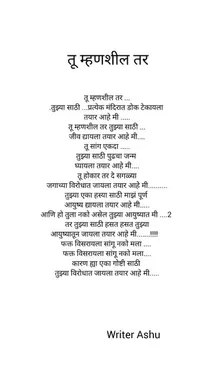 तू म्हणशील तर
तू म्हणशील तर ...
.तुझ्या साठी ...प्रत्येक मंदिरात डोक टेकायला
तयार आहे मी .....
तू म्हणशील तर तुझ्या साठी ...
जीव द्यायला तयार आहे मी....
तू सांग एकदा .....
तुझ्या साठी पुढचा जन्म
घ्यायला तयार आहे मी....
तू होकार तर दे सगळ्या
जगाच्या विरोधात जायला तयार आहे मी..........
तुझ्या एका हस्या साठी माझं पूर्ण
आयुष्य द्यायला तयार आहे मी.....
आणि हो तुला नको असेल तुझ्या आयुष्यात मी ....2
तर तुझ्या साठी हसत हसत तुझ्या
आयुष्यातून जायला तयार आहे मी......!!!!!
फक्त विसरायला सांगू नको मला ....
फक्त विसरायला सांगू नको मला....
कारण ह्या एका गोष्टी साठी
तुझ्या विरोधात जायला तयार आहे मी.....
Writer Ashu